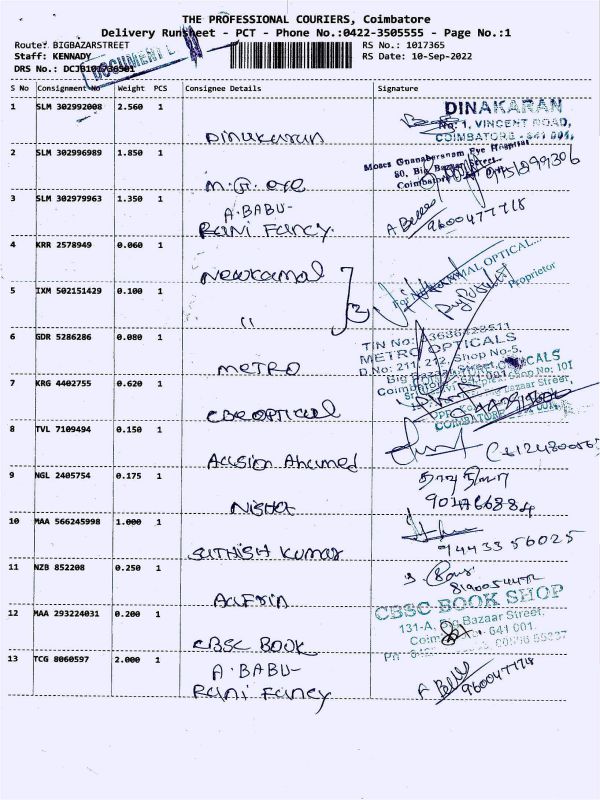 THE PROFESSIONAL COURIERS, Coimbatore
Delivery Runsheet - PCT - Phone No.:0422-3505555 - Page No.:1
Route: BIGBAZARSTREET
RS No.: 1017365
Staff: KENNADY
RS Date: 10-Sep-2022
DRS No.:
DOCUMENT
S No Consignment No Weight PCS Consignee Details Signature
1 SLM 302992008 2.560 1 Dinakaran
DINAKARAN
No: 1, VINCENT ROAD,
COIMBATORE - 641 001,
2 SLM 302996989 1.850 1 M.G. eye
Moses Gnanabaranam Eye Hospital
80, Big Bazaar Street,
3 SLM 302979963 1.350 1 A.BABU-
Rani Fancy.
9600477718
4 KRR 2578949 0.060 1 Newkamal
OPTICAL
Proprietor
5 IXM 502151429 0.100 1 "
6 GDR 5286286 0.080 1 METRO
TIN No:
METRO OPTICALS
D.No: 211, 212, Shop No-5,
7 KRG 4402755 0.620 1 CBE OPTICAL
Bazaar Street,
COIMBATORE
8 TVL 7109494 0.150 1 Aasion Ahamed
9 NGL 2405754 0.175 1 Nisha
904766884
10 MAA 566245998 1.000 1 SUTHISH Kumar
9443356025
11 NZB 852208 0.250 1 Aafrin
12 MAA 293224031 0.200 1 CBSC BOOK
CBSC BOOK SHOP
131-A, Big Bazaar Street,
641 001.
13 TCG 8060597 2.000 1 A.BABU-
Rani Fancy